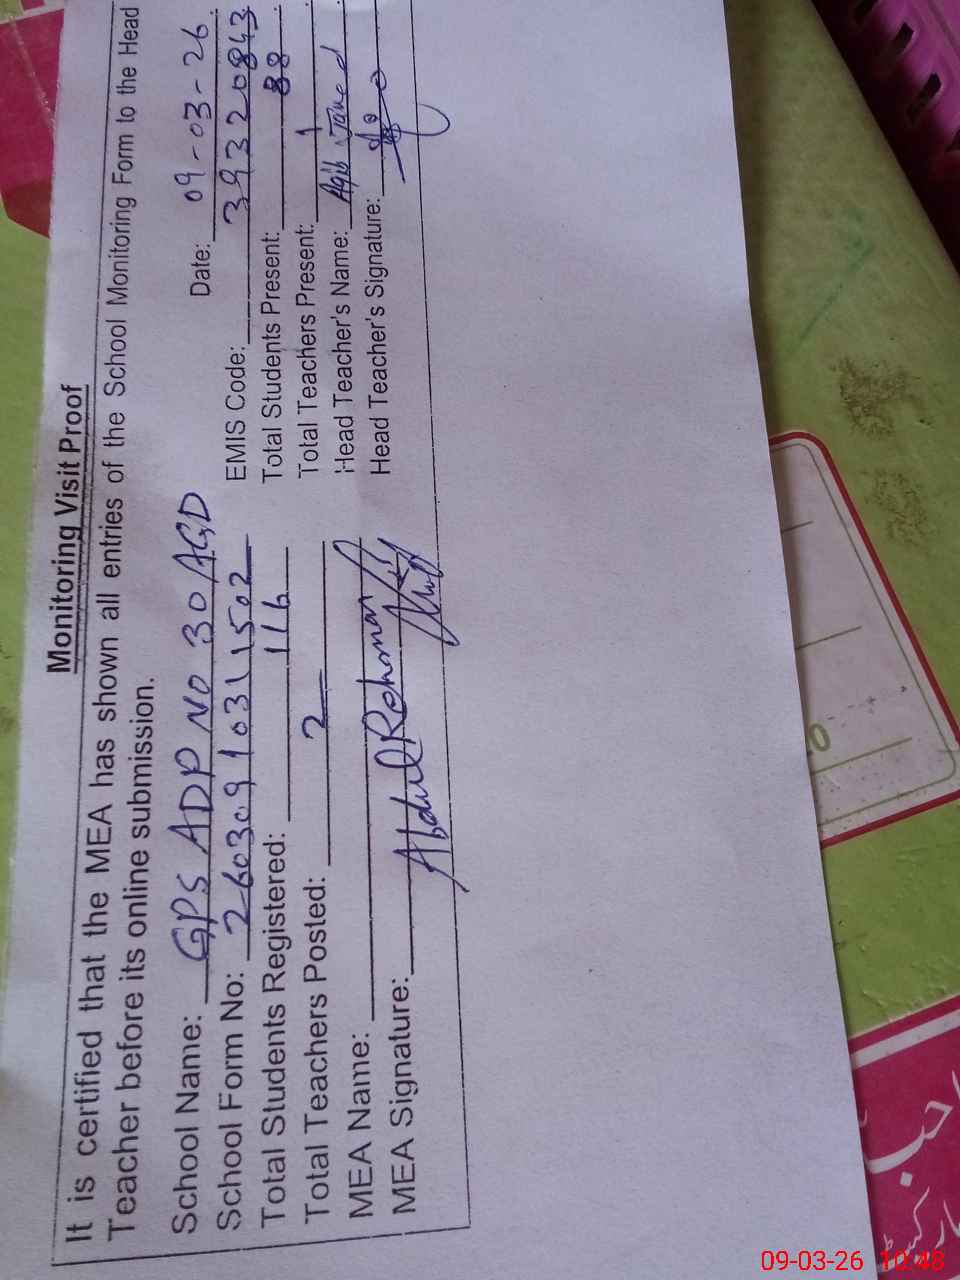 Monitoring Visit Proof
It is certified that the MEA has shown all entries of the School Monitoring Form to the Head
Teacher before its online submission.
Date: 09-03-26
School Name: GPS ADP NO 30 AGD
School Form No: 26030910311502 EMIS Code: 39320843
Total Students Registered: 116 Total Students Present: 88
Total Teachers Posted: 2 Total Teachers Present: 1
MEA Name: Abdul Rehman Head Teacher's Name: Aqib Javed
MEA Signature: Head Teacher's Signature:
09-03-26 10:48